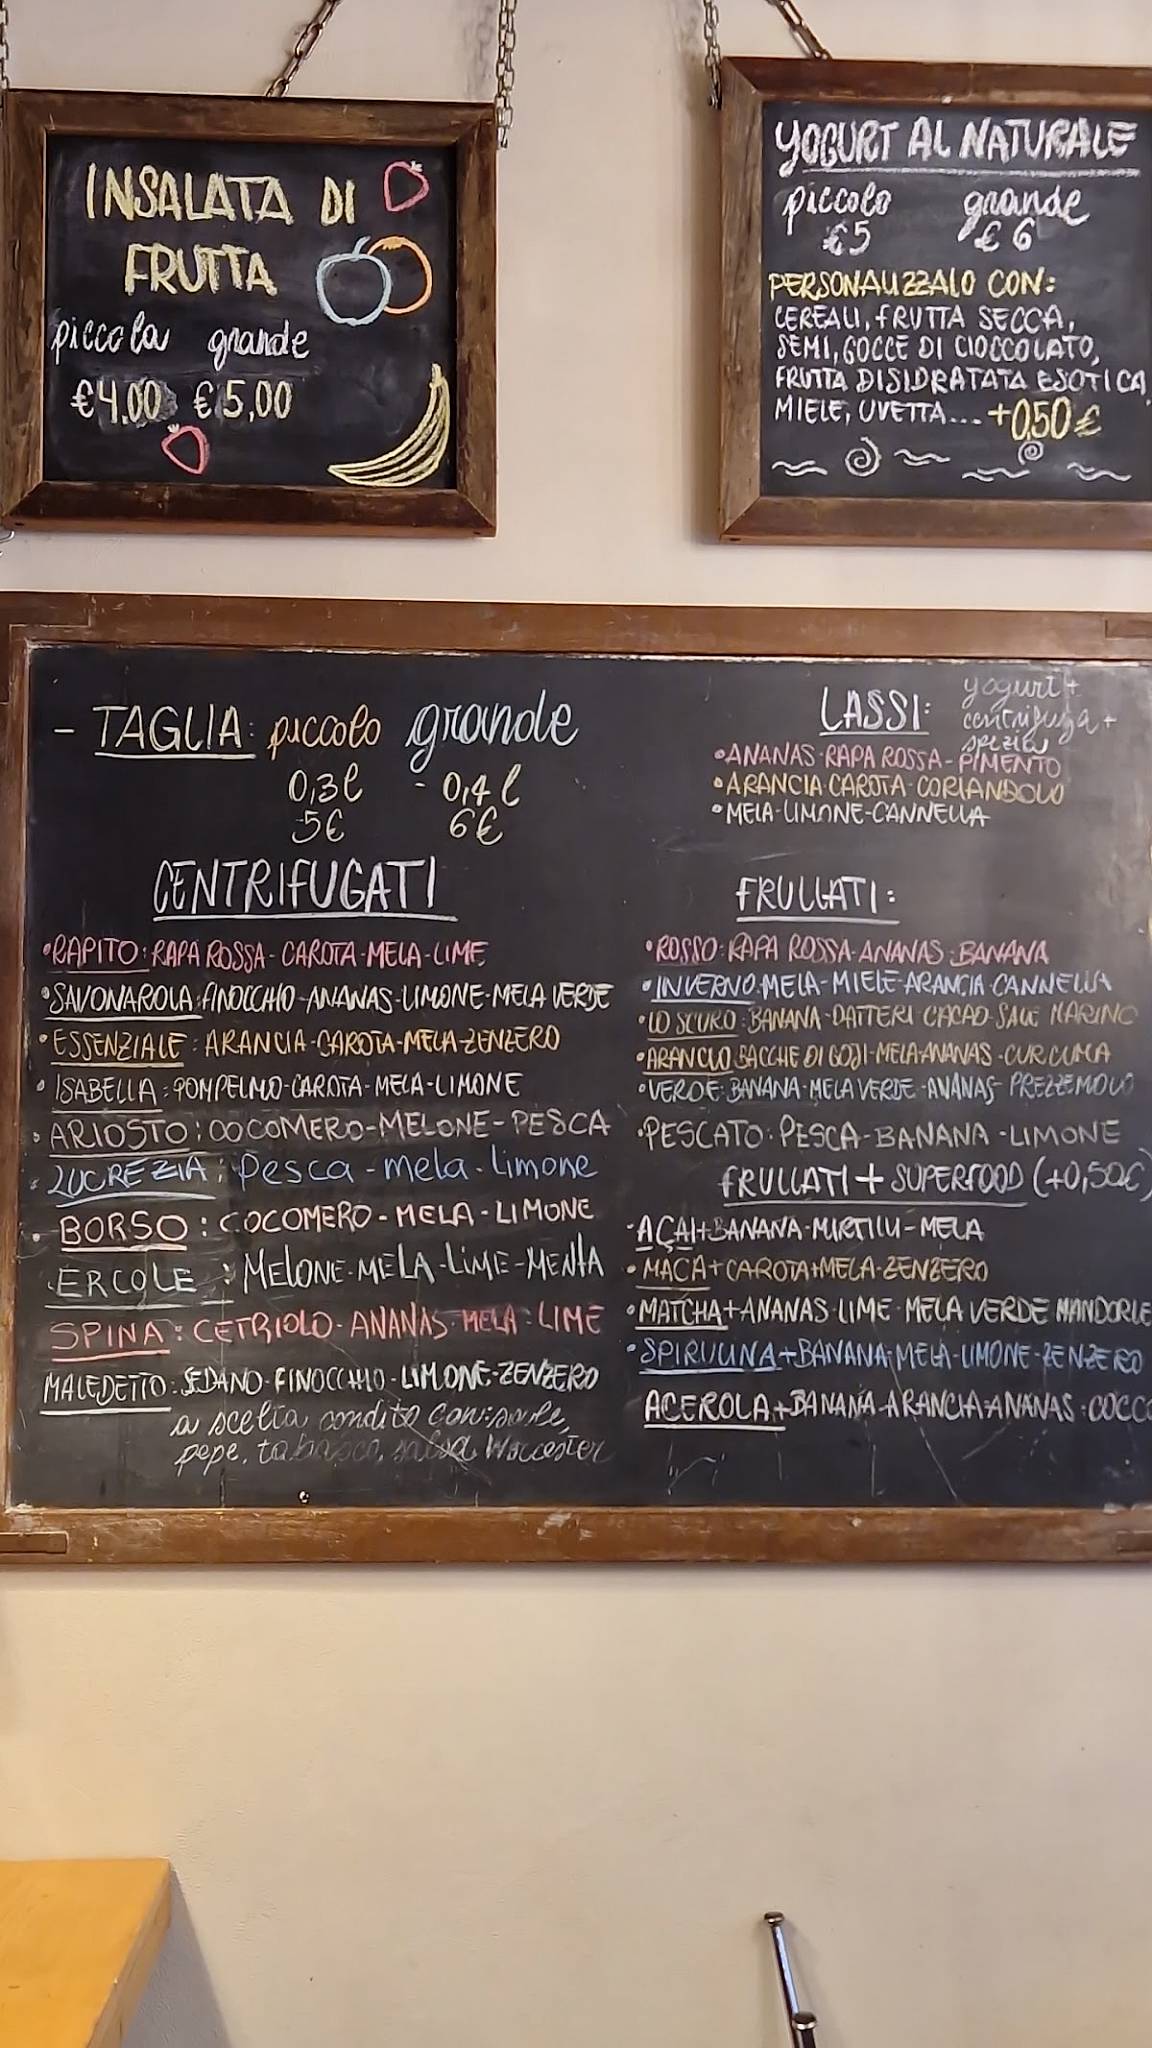 INSALATA DI
FRUTTA
piccola grande
€4.00 €5,00
YOGURT AL NATURALE
piccolo grande
€5 €6
PERSONALIZZALO CON:
CEREALI, FRUTTA SECCA,
SEMI, GOCCE DI CIOCCOLATO,
FRUTTA DISIDRATATA ESOTICA,
MIELE, UVETTA... +0,50 €
- TAGLIA: piccolo grande
0,3 l - 0,4 l
5€ 6€
CENTRIFUGATI
•RAPITO: RAPA ROSSA - CAROTA - MELA - LIME
•SAVONAROLA: FINOCCHIO - ANANAS - LIMONE - MELA VERDE
•ESSENZIALE: ARANCIA - CAROTA - MELA - ZENZERO
•ISABELLA: POMPELMO - CAROTA - MELA - LIMONE
•ARIOSTO: COCOMERO - MELONE - PESCA
•LUCREZIA: Pesca - mela - limone
•BORSO: COCOMERO - MELA - LIMONE
•ERCOLE: MELONE - MELA - LIME - MENTA
SPINA: CETRIOLO - ANANAS - MELA - LIME
MALEDETTO: SEDANO - FINOCCHIO - LIMONE - ZENZERO
a scelta condito con: sale,
pepe, tabasco, salsa Worcester
LASSI: yogurt +
centrifuga +
spezia
•ANANAS - RAPA ROSSA - PIMENTO
•ARANCIA CAROTA - CORIANDOLO
•MELA - LIMONE - CANNELLA
FRULLATI:
•ROSSO: RAPA ROSSA - ANANAS - BANANA
•INVERNO: MELA - MIELE - ARANCIA CANNELLA
•LO SCURO: BANANA - DATTERI CACAO - SALE MARINO
•ARANCIO BACCHE DI GOJI - MELA - ANANAS - CURCUMA
•VERDE: BANANA - MELA VERDE - ANANAS - PREZZEMOLO
•PESCATO: PESCA - BANANA - LIMONE
FRULLATI + SUPERFOOD (+0,50€)
•AÇAI + BANANA - MIRTILLI - MELA
•MACA + CAROTA + MELA - ZENZERO
•MATCHA + ANANAS - LIME - MELA VERDE MANDORLE
•SPIRULINA + BANANA - MELA - LIMONE - ZENZERO
ACEROLA + BANANA - ARANCIA - ANANAS - COCCO